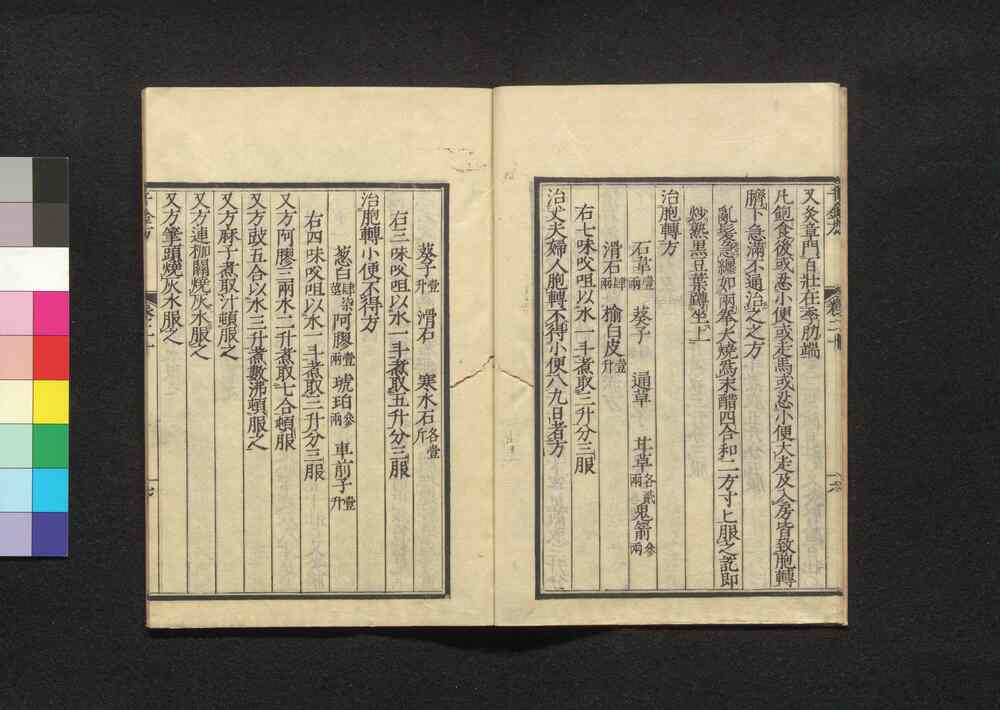 又灸章門百壯在季肋端
凡飽食後或忍小便或走馬或忍小便大走及入房皆致胞轉
臍下急滿不通治之之方
亂髮急纏如兩拳大燒爲末醋四合和二方寸匕服之訖即
炒熟黑豆葉蹲坐上
治胞轉方
石葦壹兩 葵子 通草 甘草各貳兩 鬼箭參兩
滑石肆兩 榆白皮壹升
右七味㕮咀以水一斗煮取三升分三服
治丈夫婦人胞轉不得小便八九日者方
葵子壹升 滑石 寒水石各壹斤
右三味㕮咀以水一斗煮取五升分三服
治胞轉小便不得方
葱白肆柒莖 阿膠壹兩 琥珀參兩 車前子壹升
右四味㕮咀以水一斗煮取三升分三服
又方阿膠三兩水二升煮取七合頓服
又方豉五合以水三升煮數沸頓服之
又方麻子煮取汁頓服之
又方連枷關燒灰水服之
又方筆頭燒灰水服之
千金方